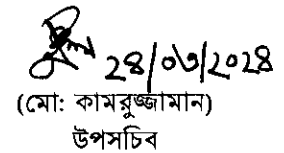 ২৪/০৩/২০২৪
(মো: কামরুজ্জামান)
উপসচিব